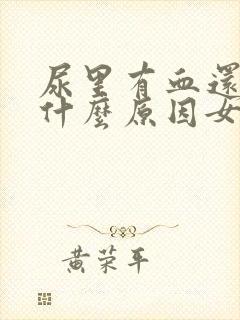 尿里有血還
什麼原因女
黄荣平